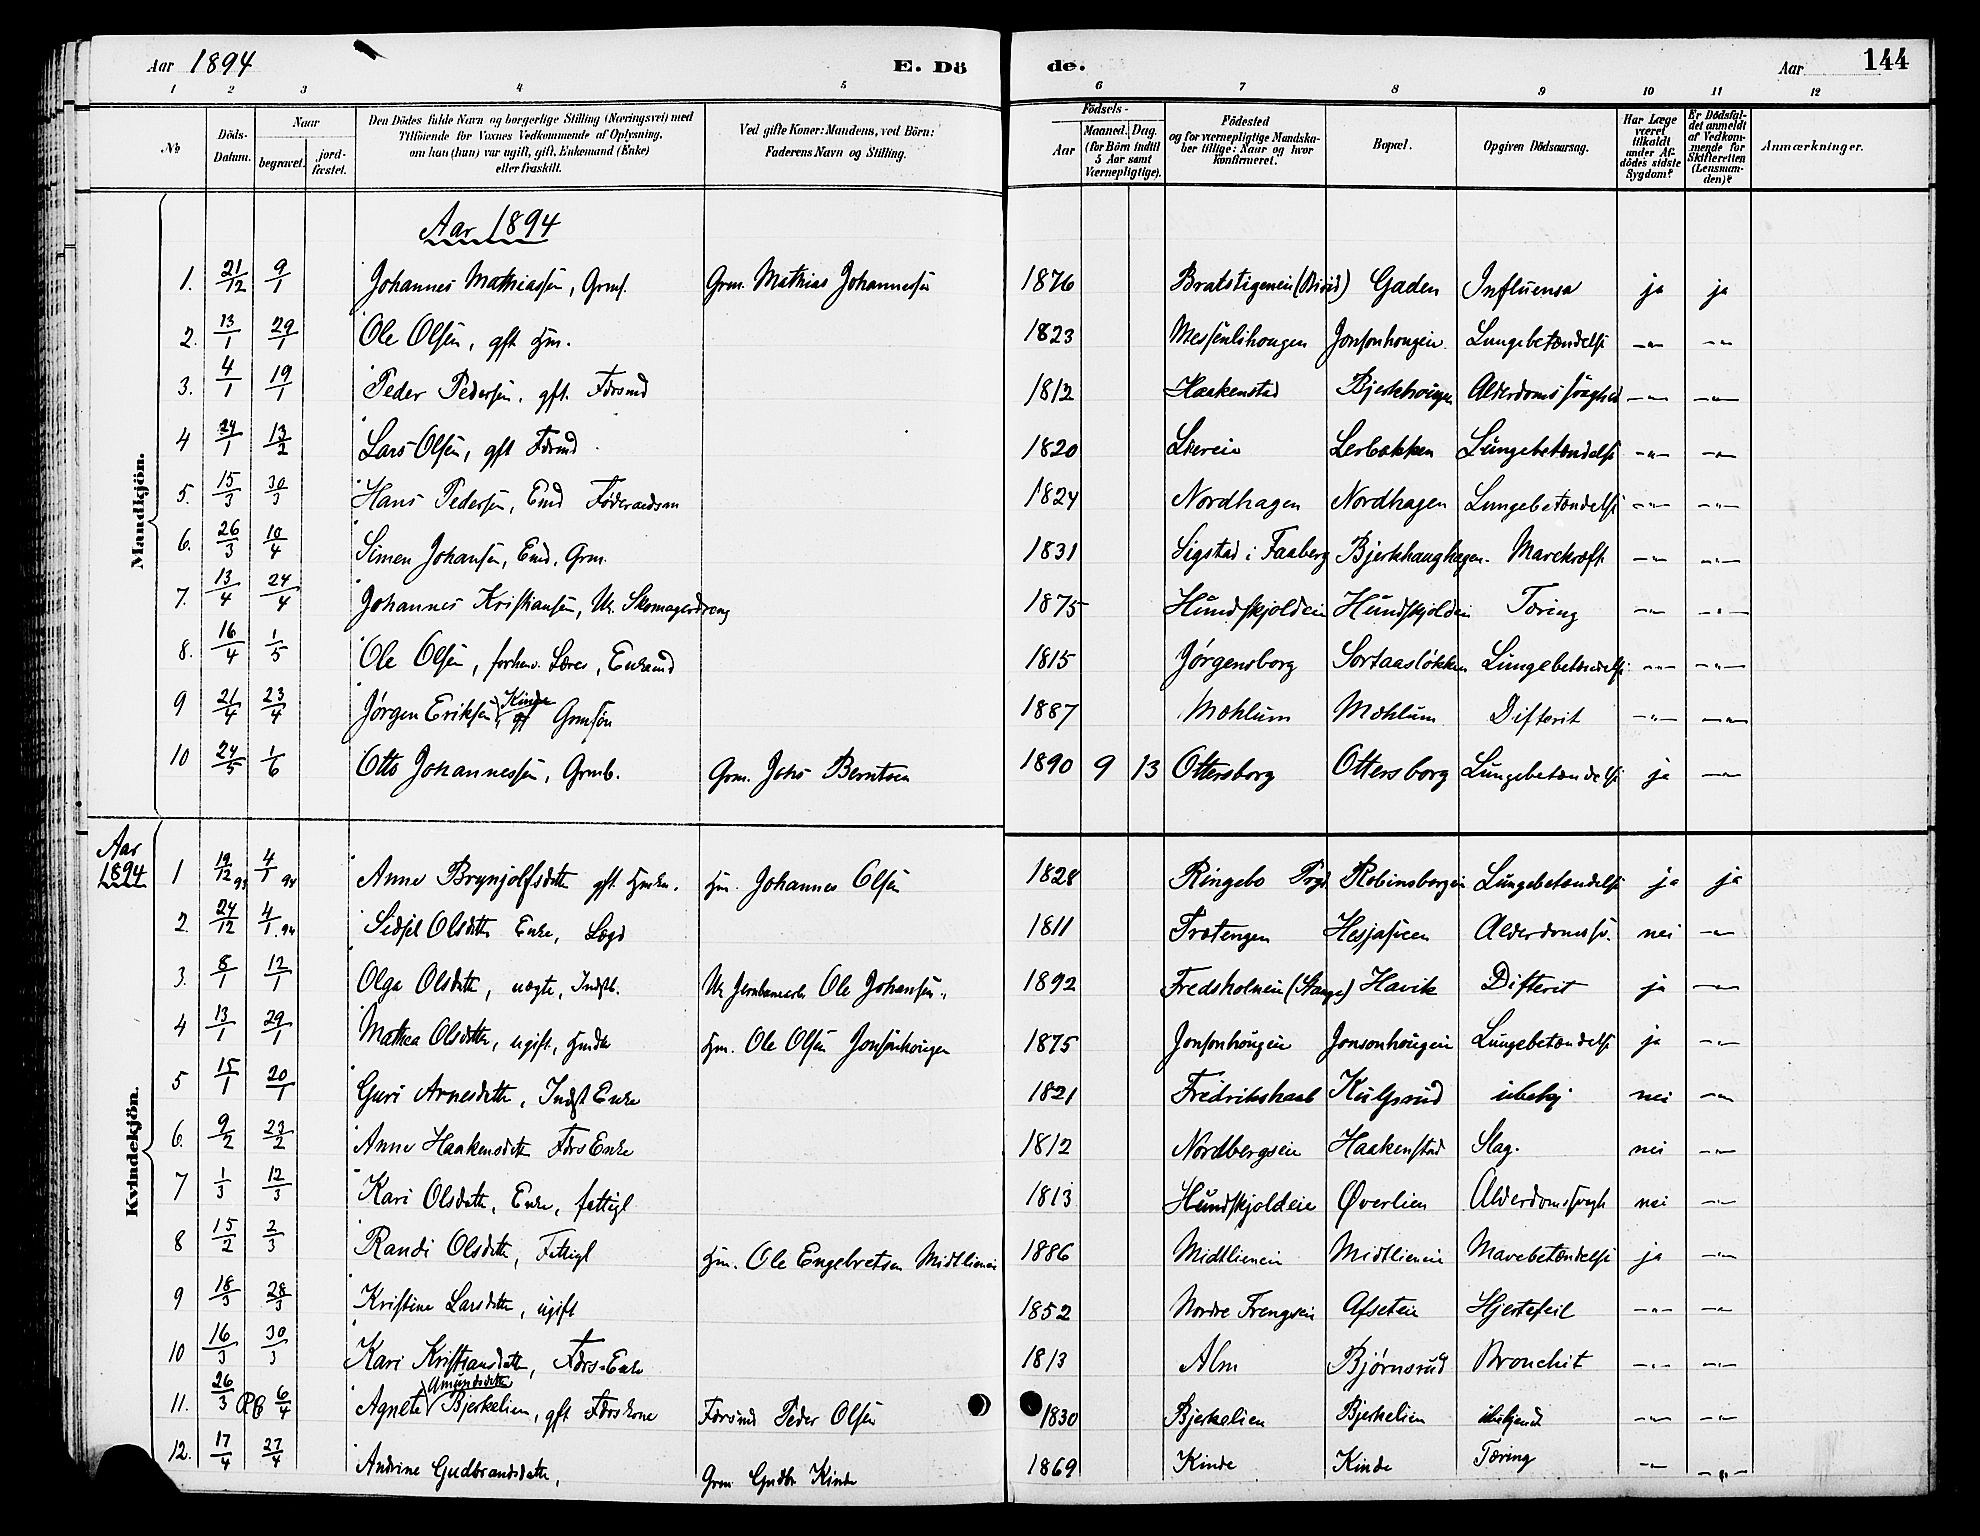 Aar 1894 E. Dö de. Aar 144
1 2 3 4 5 6 7 8 9 10 11 12
No Döds-Datum. Naar begravet. jord-fæstet. Den Dödes fulde Navn og borgerlige Stilling (Næringsvei) med Tilföiende for Voxnes Vedkommende af Oplysning, om han (hun) var ugift, gift, Enkemand (Enke) eller fraskilt. Ved gifte Koner: Mandens, ved Börn: Faderens Navn og Stilling. Födsels- Aar Maaned. Dag. (for Börn indtil 5 Aar samt Værnepligtige). Födested og for værnepligtige Mandskaber tillige: Naar og hvor konfirmeret. Bopæl. Opgiven Dödsaarsag. Har Læge været tilkaldt under Afdödes sidste Sygdom? Er Dödsfaldet anmeldt af Vedkommende for Skifteretten (Lensmanden)? Anmærkninger.
Mandkjön.
Aar 1894
1. 21/12 9/1 Johannes Mathiassen, Grms. Grm. Mathias Johannessen 1876 Bratstigeneie (Biri) Gaden Influensa ja ja
2. 13/1 29/1 Ole Olsen, gft Hm. 1823 Messenlihougen Jonsonhougen Lungebetændelse -"- -"-
3. 4/1 19/1 Peder Pedersen, gft. Fdrsmd 1812 Haakenstad Bjerkehougen Alderdomssvaghed -"- -"-
4 24/1 13/2 Lars Olsen, gft Fdrsmd 1820 Lereie Lerbakken Lungebetændelse -"- -"-
5. 15/3 30/3 Hans Pedersen, Emd Føderaadsm 1824 Nordhagen Nordhagen Lungebetændelse -"- -"-
6. 26/3 10/4 Simen Johansen, Emd. Grm. 1831 Sigstad i Faaberg Bjerkhaughagen. Mavekræft -"- -"-
7. 13/4 24/4 Johannes Kristiansen, Uk. Skomagerdreng 1875 Hundskjoldeie Hundskjoldeie Tæring -"- -"-
8. 16/4 1/5 Ole Olsen, forhen. Lærer, Enkemd 1815 Jørgensborg Sortaasløkken Lungebetændelse -"- -"-
9 21/4 23/4 Jørgen Eriksen Kinde Grmsøn 1887 Mæhlum Mæhlum Difterit -"- -"-
10 24/5 1/6 Otto Johannessen, Grmb. Grm. Johs Berntsen 1890 9 13 Ottersborg Ottersborg Lungebetændelse ja -"-
Kvindekjön.
Aar 1894
1 19/12 93 4/1 94 Anne Brynjolfsdatter gft Hmkn. Hm. Johannes Olsen 1828 Ringebo Prgd Robinsborgeie Lungebetændelse ja ja
2. 24/12 4/1 94 Sidsel Olsdatter Enke, Lægd 1811 Trætengen Hesjasveen Alderdomssv. nei -"-
3. 8/1 12/1 Olga Olsdatter, uægte, Indstb. Uk Jernbanearb. Ole Johansen 1892 Fredsholmeie (Stange) Havik Difterit ja -"-
4 13/1 29/1 Mathea Olsdatter, ugift, Hmdtr Hm. Ole Olsen Jonsonhougen 1875 Jonsonhougen Jonsonhougen Lungebetændelse ja -"-
5 15/1 20/1 Guri Arnesdatter, Indst Enke 1821 Fredrikshaab Kulsrud ubekj nei -"-
6. 9/2 23/2 Anne Haakensdatter Fdrs Enke 1812 Nordbergseie Haakenstad Slag. nei -"-
7 1/3 12/3 Kari Olsdatter, Enke, fattigl 1813 Hundskjoldeie Øverlien Alderdomssvagh nei -"-
8 15/2 2/3 Randi Olsdatter, Fattigl Hm. Ole Engebretsen Midtlieneie 1886 Midtlieneie Midtlieneie Mavebetændelse ja -"-
9 18/3 28/3 Kristine Larsdatter, ugift 1852 Nordre Frengseie Afseteie Hjertefeil -"- -"-
10 16/3 30/3 Kari Kristiansdatter, Fdrs-Enke 1813 Alm Bjørnsrud Bronchit -"- -"-
11. 26/3 6/4 Agnete Amundsdatter Bjerkelien, gft Fdrskone Fdrsmd Peder Olsen 1830 Bjerkelien Bjerkelien ubekjendt -"- -"-
12. 17/4 27/4 Andrine Gudbrandsdatter, Grm Gudbr Kinde 1869 Kinde Kinde Tæring -"- -"-